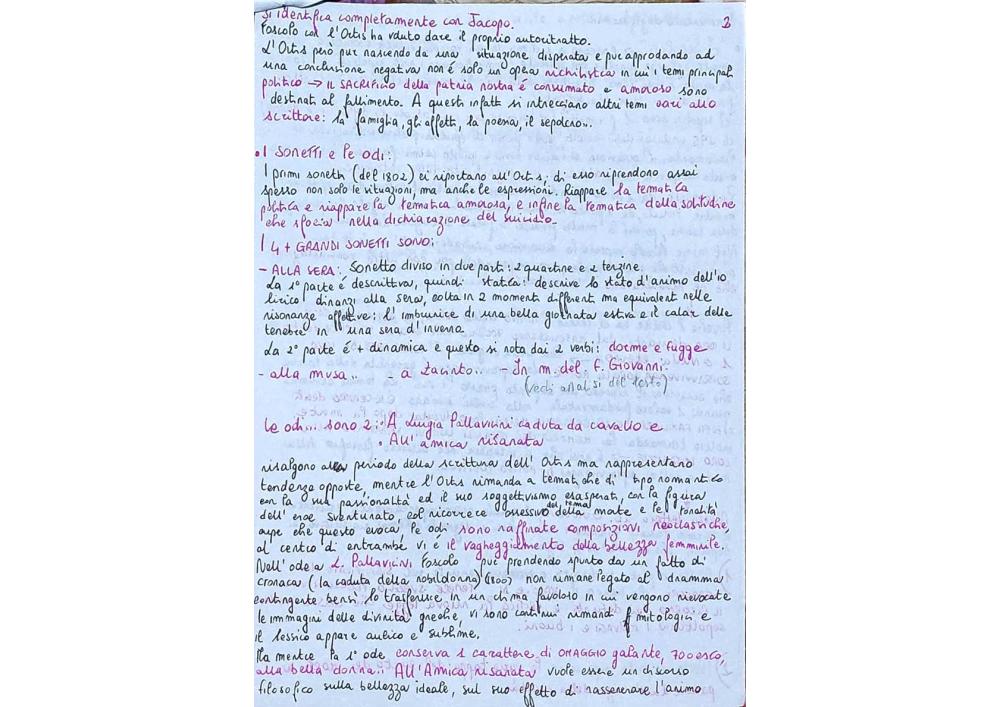 2
si identifica completamente con Jacopo.
Foscolo con l'Ortis ha vouto dare il proprio autoritratto.
L'Ortis però pur nascendo da una situazione disperata e pur approdando ad
una conclusione negativa non é solo un'opera nichilistica in cui i temi principali
politico → IL SACRIFICIO della patria nostra é consumato e amoroso sono
destinati al fallimento. A questi infatti si intrecciano altri temi cari allo
scrittore: la famiglia, gli affetti, la poesia, il sepolcro...
• I SONETTI e le odi:
I primi sonetti (del 1802) ci riportano all'Ortis, di esso riprendono assai
spesso non solo le situazioni, ma anche le espressioni. Riappare la tematica
politica e riappare la tematica amorosa, e infine la tematica della solitudine
che sfocia nella dichiarazione del suicidio.
I 4 + GRANDI SONETTI SONO:
- ALLA SERA: Sonetto diviso in due parti: 2 quartine e 2 terzine
La 1° parte é descrittiva, quindi statica: descrive lo stato d'animo dell'io
lirico dinanzi alla sera, colta in 2 momenti differenti ma equivalenti nelle
risonanze affettive: l'imbrunire di una bella giornata estiva e il calar delle
tenebre in una sera d'inverno.
La 2° parte é + dinamica e questo si nota dai 2 verbi: dorme e fugge
- alla musa.. - a Zacinto.. - In m. del. f. Giovanni.
(vedi analisi del testo)
Le odi... sono 2: • A Luigia Pallavicini caduta da cavallo e
• All'amica risanata
risalgono al periodo della scrittura dell'Ortis ma rappresentano
tendenze opposte, mentre l'Ortis rimanda a tematiche di tipo romantico
con la sua passionalità ed il suo soggettivismo esasperati, con la figura
dell'eroe sventurato, col ricorrere ossessivo del tema della morte e le tonalità
cupe che questo evoca, le odi sono raffinate composizioni neoclassiche,
al centro di entrambe vi é il vagheggiamento della bellezza femminile.
Nell'ode a L. Pallavicini Foscolo pur prendendo spunto da un fatto di
cronaca (la caduta della nobildonna) (1800) non rimane legato al dramma
contingente bensì lo trasferisce in un clima favoloso in cui vengono rievocate
le immagini delle divinità greche, vi sono continui rimandi mitologici e
il lessico appare aulico e sublime.
Ma mentre la 1° ode conserva 1 carattere di OMAGGIO galante, 700esco,
alla bella donna.. All'Amica risanata vuole essere un discorso
filosofico sulla bellezza ideale, sul suo effetto di rasserenare l'animo